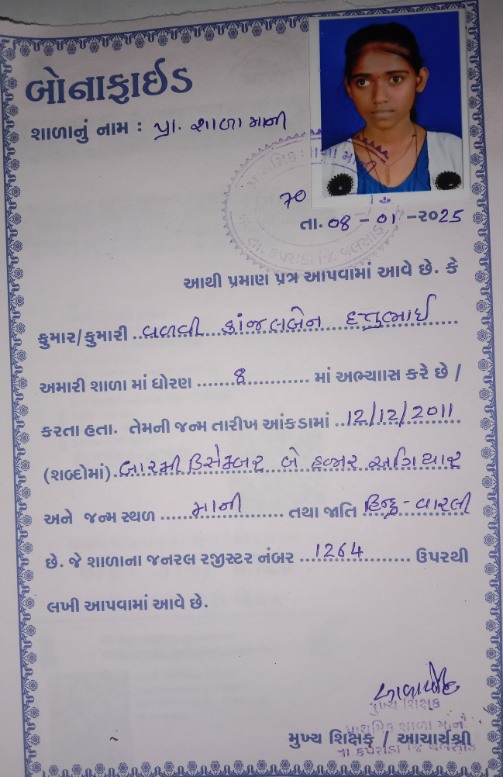 બોનાફાઈડ
શાળાનું નામ : પ્રા. શાળા માની
70
તા. 08 - 01 - ૨૦25
આથી પ્રમાણ પત્ર આપવામાં આવે છે. કે
કુમાર/કુમારી .. વળવી કાંજલબેન
અમારી શાળા માં ધોરણ ........8............ માં અભ્યાસ કરે છે /
કરતા હતા. તેમની જન્મ તારીખ આંકડામાં ..12/12/2011
(શબ્દોમાં) બારમી ડિસેમ્બર બે હજાર અગિયાર
અને જન્મ સ્થળ ......માની......... તથા જાતિ હિન્દુ - વારલી
છે. જે શાળાના જનરલ રજીસ્ટર નંબર ...1264............ ઉપરથી
લખી આપવામાં આવે છે.
મુખ્ય શિક્ષક
પ્રાથમિક શાળા માની
મુખ્ય શિક્ષક / આચાર્યશ્રી
તા કપરાડા જિ વલસાડ